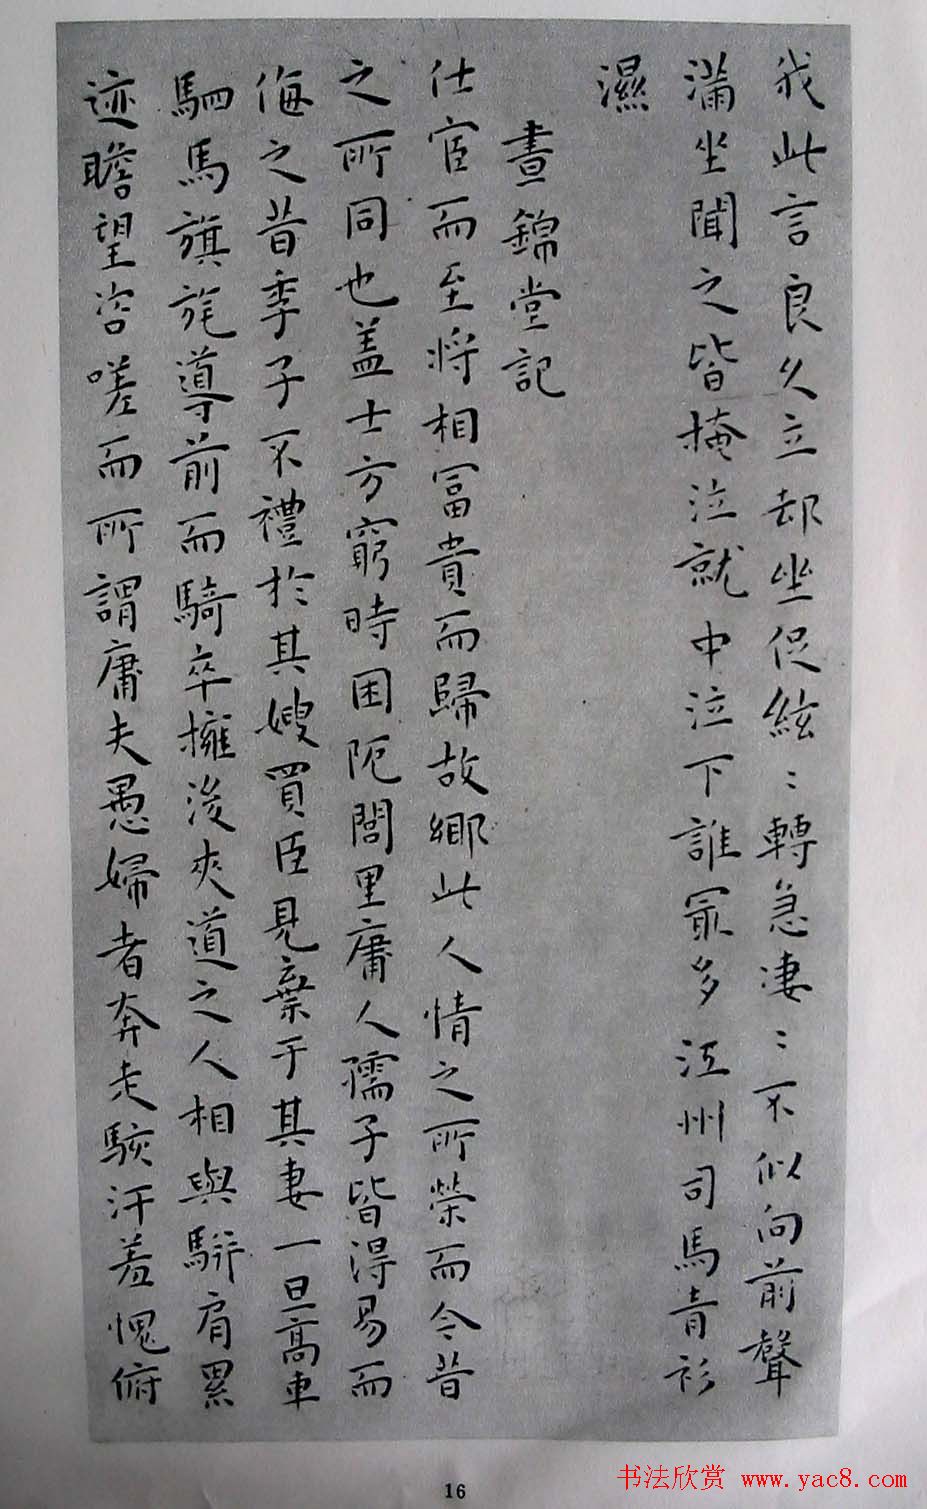 我此言良久立却坐促絃〻轉急淒〻不似向前聲
滿坐聞之皆掩泣就中泣下誰冣多江州司馬青衫
濕
晝錦堂記
仕宦而至將相冨貴而歸故鄉此人情之所榮而今昔
之所同也盖士方窮時困阨閭里庸人孺子皆得易而
侮之昔季子不禮於其嫂買臣見棄于其妻一旦高車
駟馬旗旄導前而騎卒擁後夾道之人相與駢肩累
迹瞻望咨嗟而所謂庸夫愚婦者奔走駭汗羞愧俯
16
书法欣赏 www.yac8.com